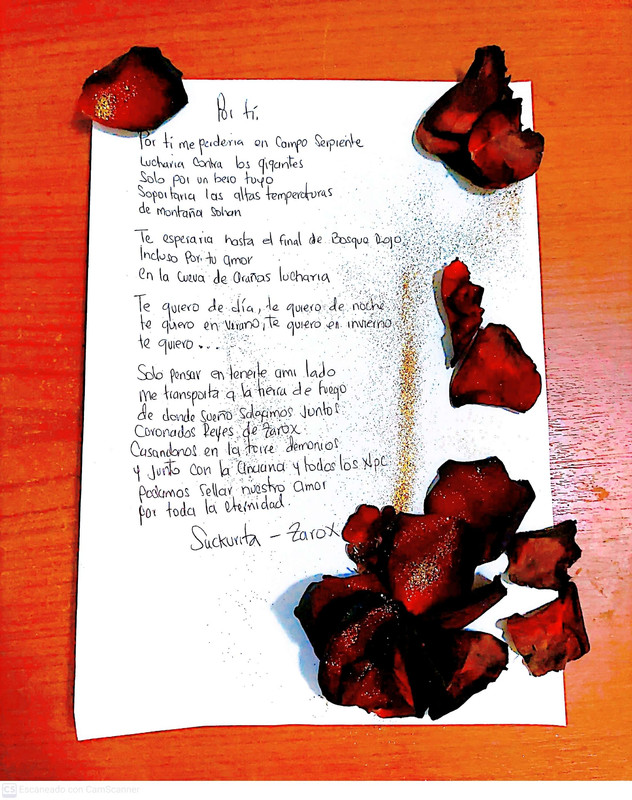 Por ti.
Por ti me perderia en Campo Serpiente
Lucharia contra los gigantes
Solo por un beso tuyo
Soportaria las altas temperaturas
de montaña Sohan
Te esperaria hasta el final de Bosque Rojo
Incluso Por tu amor
en la Cueva de arañas lucharia
Te quiero de día, te quiero de noche
te quiero en verano, te quiero en invierno
te quiero...
Solo pensar en tenerte ami lado
me transporta a la tierra de fuego
de donde sueño salgamos juntos
Coronados Reyes de Zarox.
Casandonos en la torre demonios
y junto con la anciana y todos los Npc
podamos sellar nuestro amor
por toda la eternidad.
Suckurita - Zarox
CS Escaneado con CamScanner